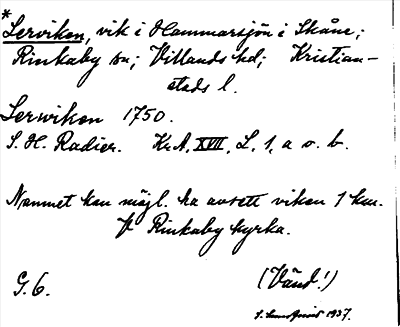 *Lerviken, vik i Hammarsjön i Skåne;
Rinkaby sn; Villands hd; Kristian-
stads l.
Lerwiken 1750.
S. H. Radier. Kr.A. XVII, L. 1, a o. b.
Namnet kan möjl. ha avsett viken 1 km.
V Rinkaby kyrka.
G.6.
(Vänd!)
1937.